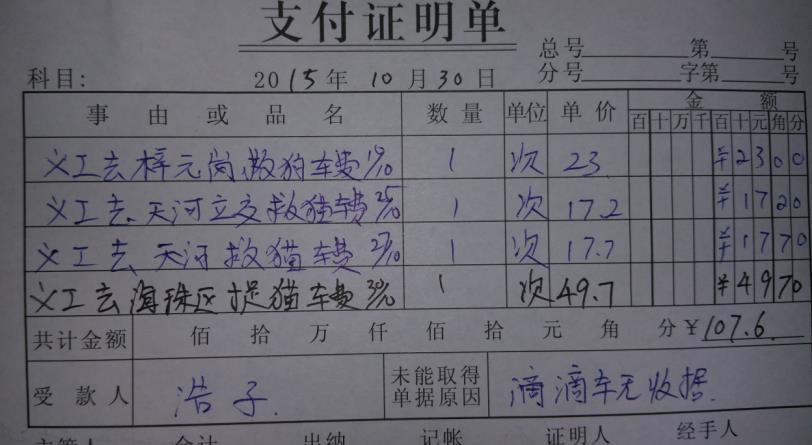 支付证明单
总号 第 号
科目: 2015年10月30日 分号 字第 号
事由或品名 数量 单位 单价 金额
百十万千百十元角分
义工去梓元岗救狗车费 1 次 23 ¥2300
义工去、天河立交救猫车费25/10 1 次 17.2 ¥1720
义工去、天河救猫车费27/10 1 次 17.7 ¥1770
义工去海珠区捉猫车费30/10 1 次 49.7 ¥4970
共计金额 佰拾万仟佰拾元角分¥107.6
受款人 浩子 未能取得单据原因 滴滴车无收据.
主管人 会计 出纳 记帐 证明人 经手人